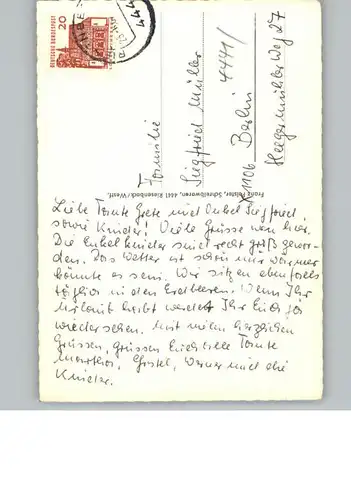 DEUTSCHE BUNDESPOST
20
444
Familie
Siegfried Müller
4441/
X 1106 Berlin
Heegermühler Weg 27
Franz Felster, Schreibwaren, 4441 Riesenbeck/Westf.
Liebe Tante Grete und Onkel Siegfried,
sowie Kinder! Viele Grüsse von hier.
Die Enkelkinder sind recht groß gewor-
den. Das Wetter ist schön nur wärmer
könnte es sein. Wir sitzen ebenfalls
täglich in den Erdbeeren. Wenn Ihr
Urlaub habt werdet Ihr Euch ja
wiedersehen. Mit vielen herzlichen
Grüssen, grüssen Euch alle Tante
Martha, Christel, Werner und die
Kinder.